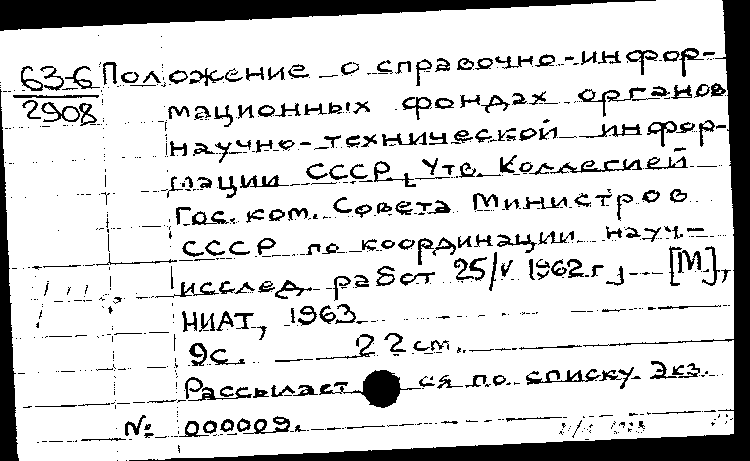 63-6 Положение о справочно-инфор-
2908 мационных фондах органов
научно-технической инфор-
мации СССР. [Утв. Коллегией
Гос. ком. Совета Министров
СССР по координации науч.-
исслед. работ 25/V 1962 г.] [М.],
НИАТ, 1963.
9с. 22 см.
Рассылается по списку. Экз.
№ 000009.